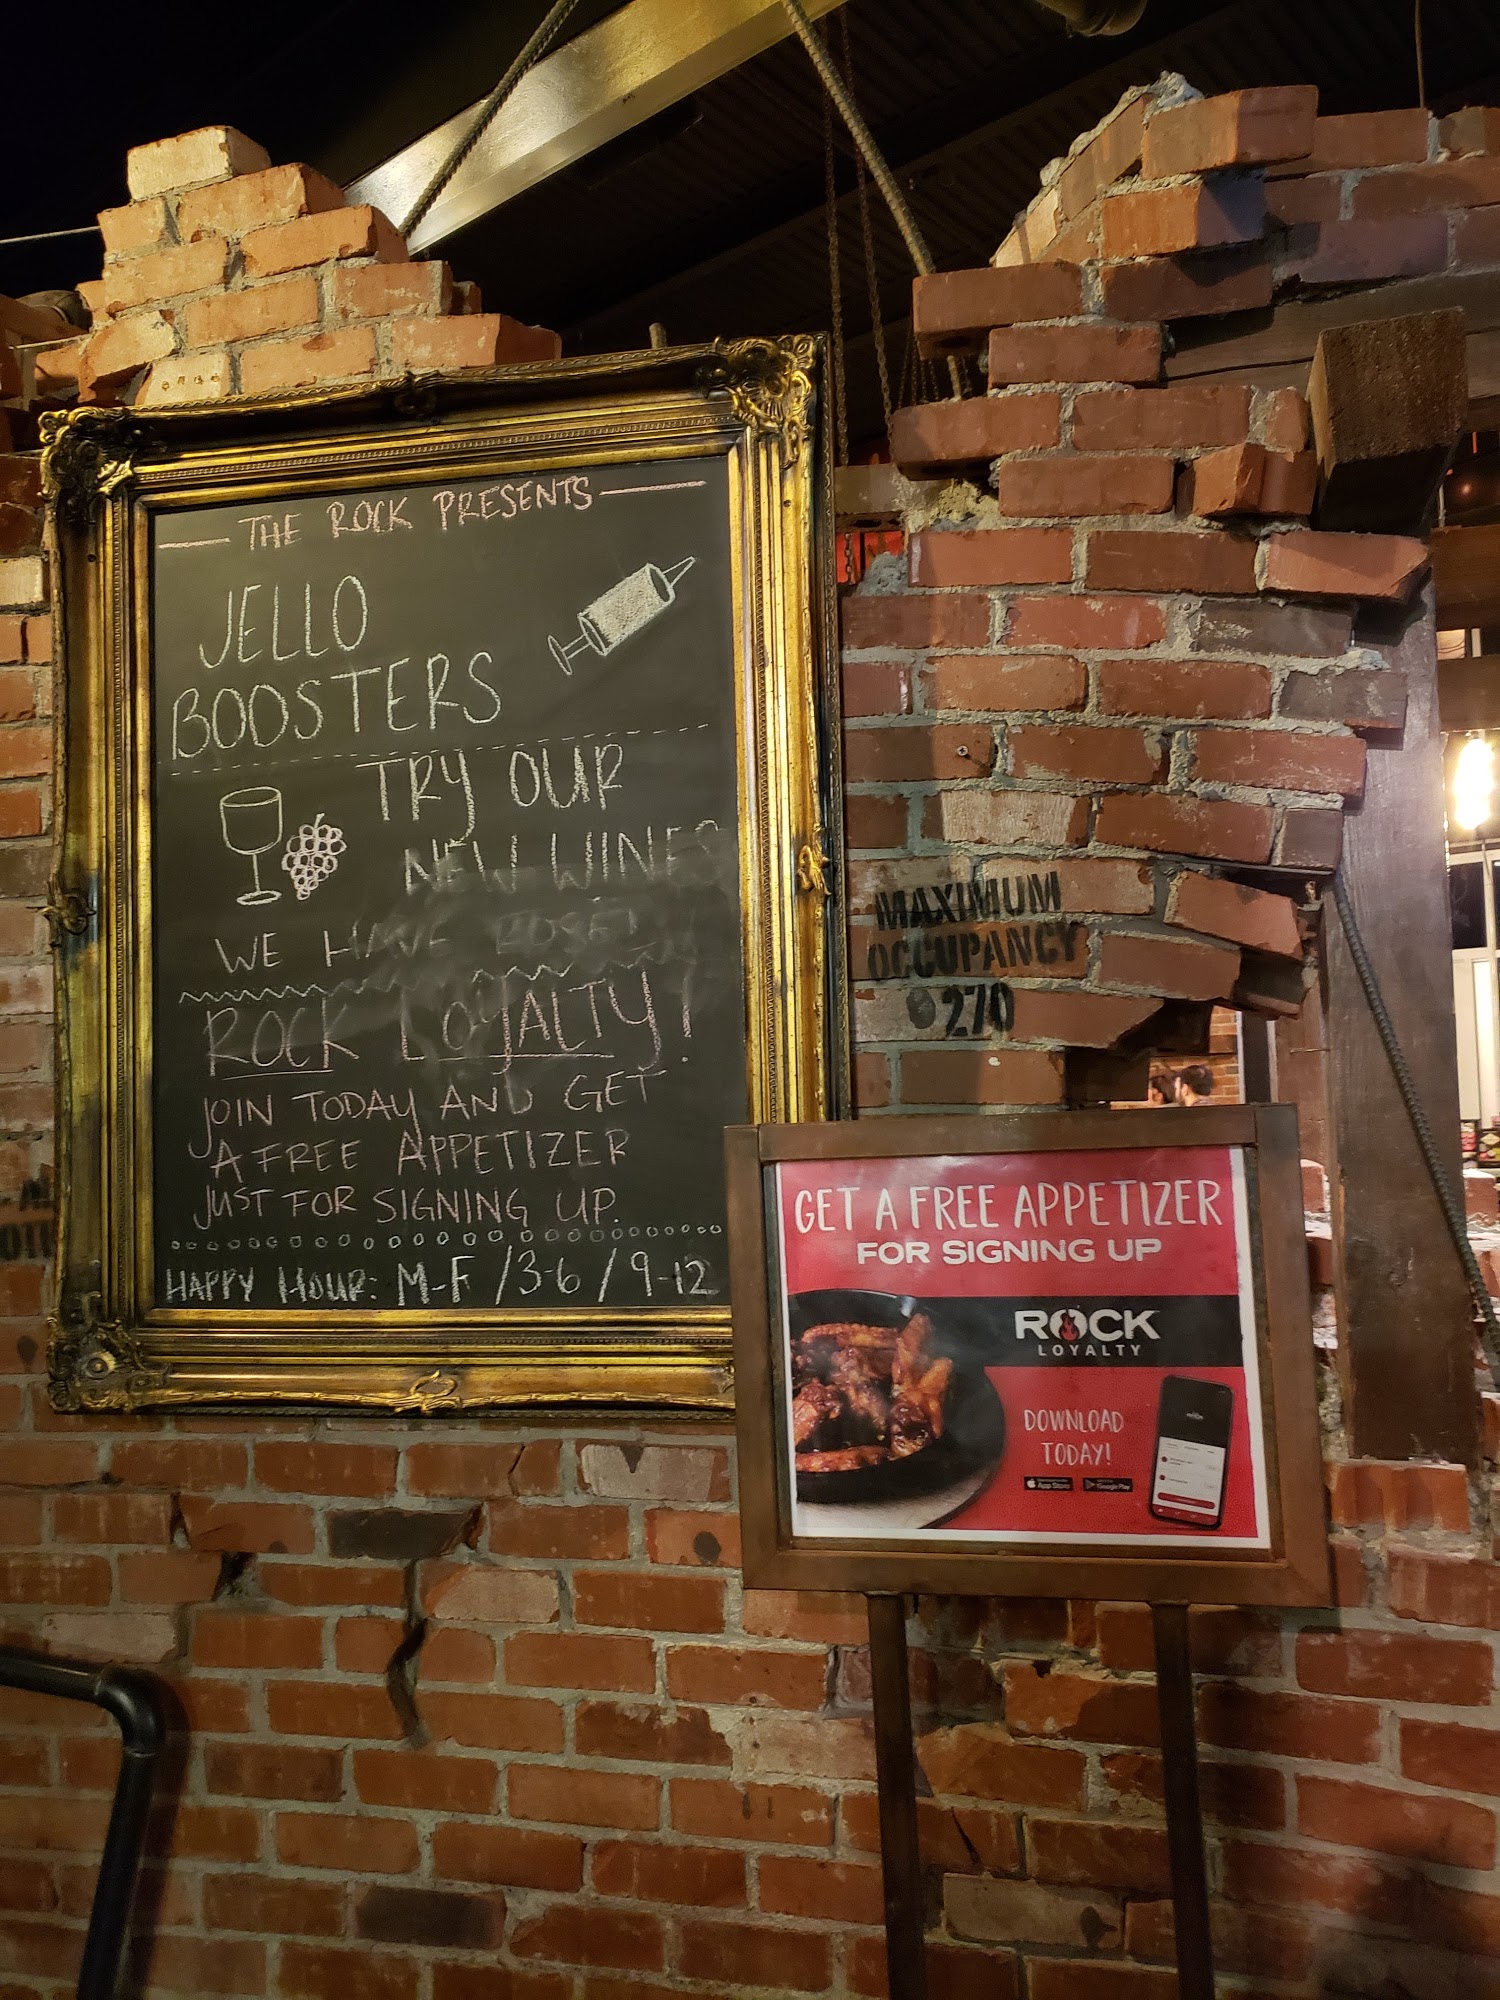 THE ROCK PRESENTS
JELLO
BOOSTERS
TRY OUR
NEW WINES
WE HAVE ROSÉ!
ROCK LOYALTY!
JOIN TODAY AND GET
A FREE APPETIZER
JUST FOR SIGNING UP.
HAPPY HOUR: M-F / 3-6 / 9-12
MAXIMUM
OCCUPANCY
270
GET A FREE APPETIZER
FOR SIGNING UP
ROCK
LOYALTY
DOWNLOAD
TODAY!
App Store
Google Play